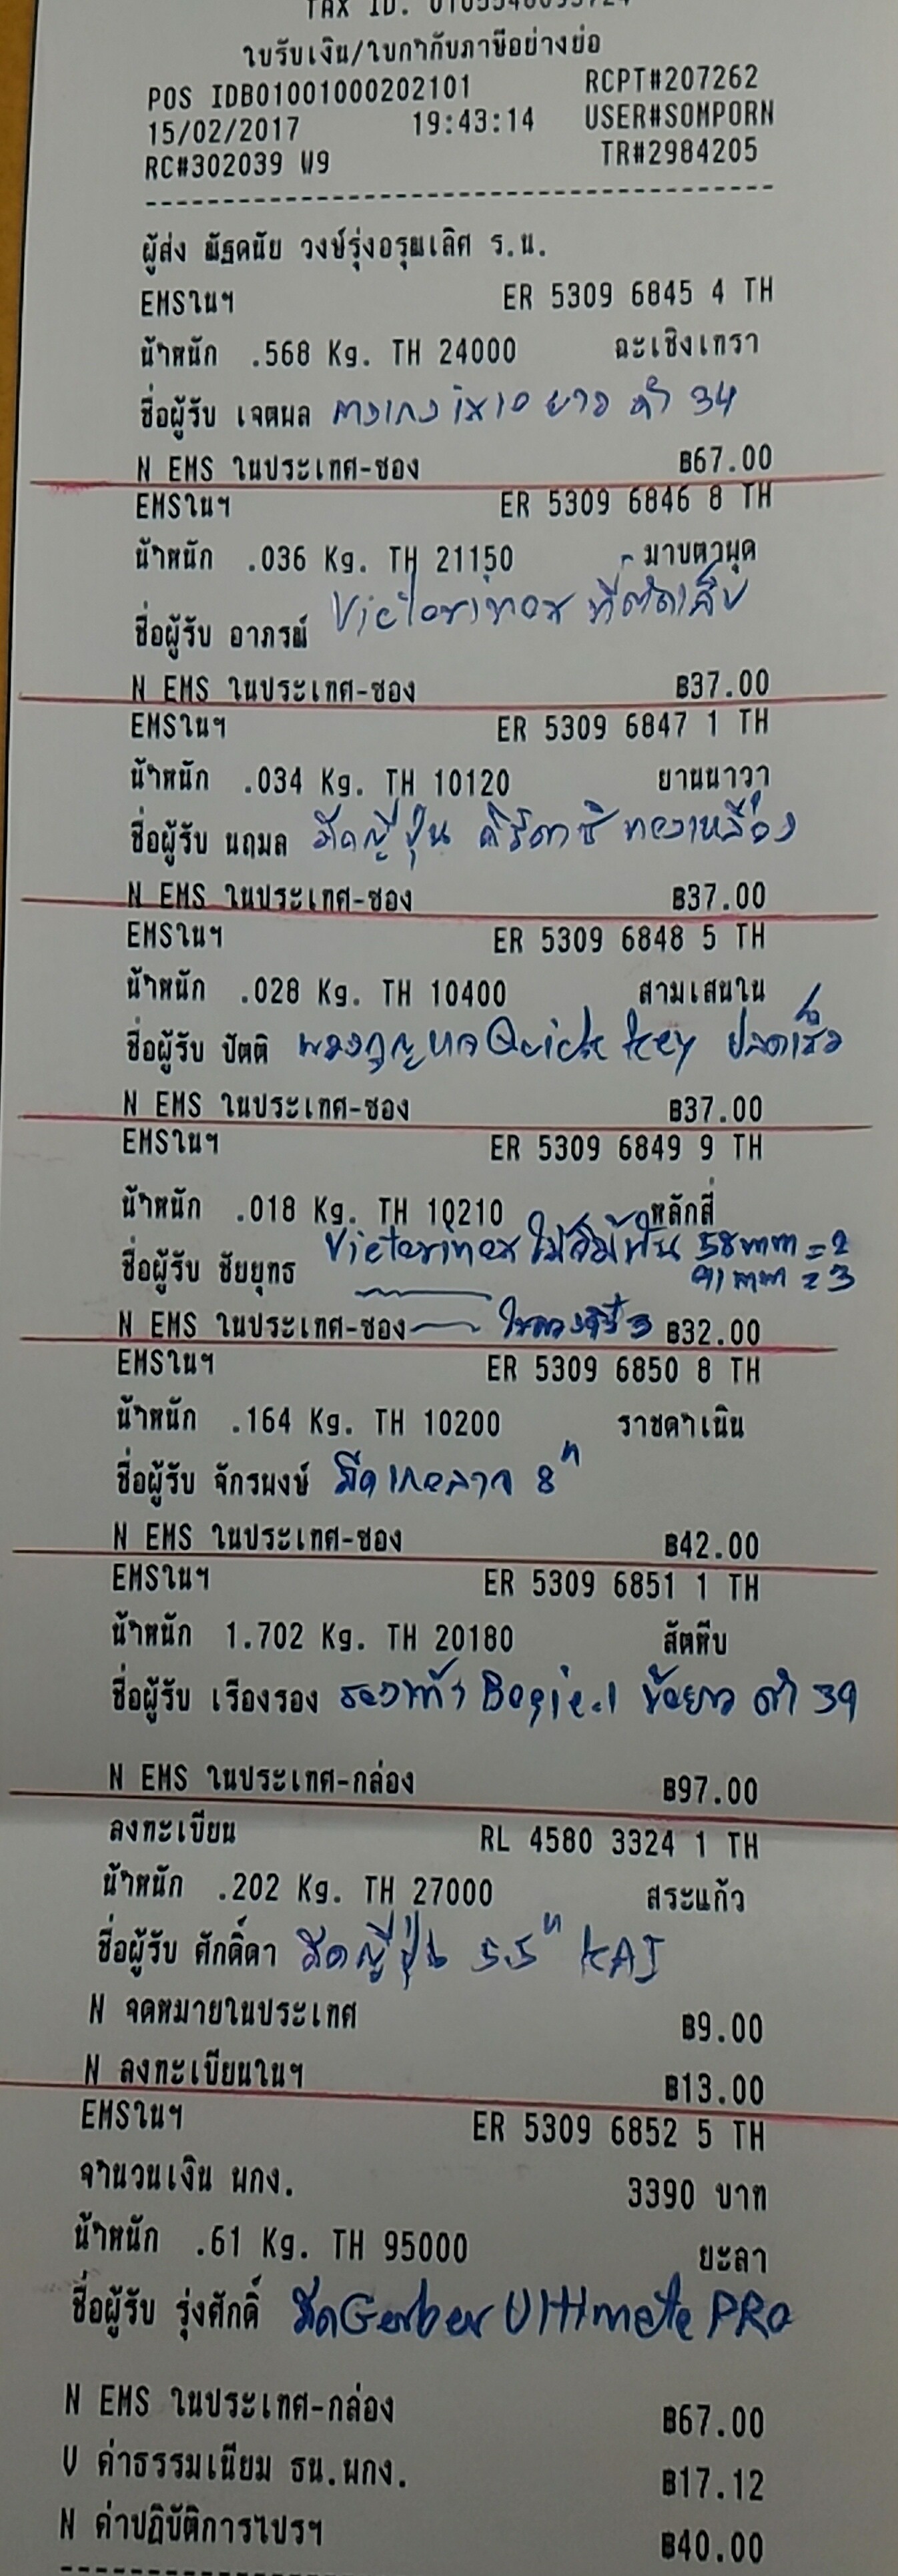 TAX ID.
ใบรับเงิน/ใบกำกับภาษีอย่างย่อ
POS IDB01001000202101 RCPT#207262
15/02/2017 19:43:14 USER#SOMPORN
RC#302039 W9 TR#2984205
ผู้ส่ง ณัฐดนัย วงษ์รุ่งอรุณเลิศ ร.น.
EMSในฯ ER 5309 6845 4 TH
น้ำหนัก .568 Kg. TH 24000 ฉะเชิงเทรา
ชื่อผู้รับ เจตพล กางเกง ยาว ดำ 34
N EMS ในประเทศ-ซอง ฿67.00
EMSในฯ ER 5309 6846 8 TH
น้ำหนัก .036 Kg. TH 21150 มาบตาพุด
ชื่อผู้รับ อาภรณ์ Victorinox ที่ตัดเล็บ
N EMS ในประเทศ-ซอง ฿37.00
EMSในฯ ER 5309 6847 1 TH
น้ำหนัก .034 Kg. TH 10120 ยานนาวา
ชื่อผู้รับ นฤมล มีดญี่ปุ่น ทองเหลือง
N EMS ในประเทศ-ซอง ฿37.00
EMSในฯ ER 5309 6848 5 TH
น้ำหนัก .028 Kg. TH 10400 สามเสนใน
ชื่อผู้รับ ปัตติ พวงกุญแจ Quick key ปลดเร็ว
N EMS ในประเทศ-ซอง ฿37.00
EMSในฯ ER 5309 6849 9 TH
น้ำหนัก .018 Kg. TH 10210 หลักสี่
ชื่อผู้รับ ชัยยุทธ Victorinox ไม้จิ้มฟัน 58mm = 2
91 mm = 3
N EMS ในประเทศ-ซอง ฿32.00
EMSในฯ ER 5309 6850 8 TH
น้ำหนัก .164 Kg. TH 10200 ราชดำเนิน
ชื่อผู้รับ จักรพงษ์ มีดเหลาจ 8"
N EMS ในประเทศ-ซอง ฿42.00
EMSในฯ ER 5309 6851 1 TH
น้ำหนัก 1.702 Kg. TH 20180 สัตหีบ
ชื่อผู้รับ เรืองรอง รองเท้า ข้อยาว ดำ 39
N EMS ในประเทศ-กล่อง ฿97.00
ลงทะเบียน RL 4580 3324 1 TH
น้ำหนัก .202 Kg. TH 27000 สระแก้ว
ชื่อผู้รับ ศักดิ์ดา มีดญี่ปุ่น 5.5" KAI
N จดหมายในประเทศ ฿9.00
N ลงทะเบียนในฯ ฿13.00
EMSในฯ ER 5309 6852 5 TH
จำนวนเงิน พกง. 3390 บาท
น้ำหนัก .61 Kg. TH 95000 ยะลา
ชื่อผู้รับ รุ่งศักดิ์ มีด Gerber Ultimate PRO
N EMS ในประเทศ-กล่อง ฿67.00
V ค่าธรรมเนียม ธน.พกง. ฿17.12
N ค่าปฏิบัติการไปรฯ ฿40.00